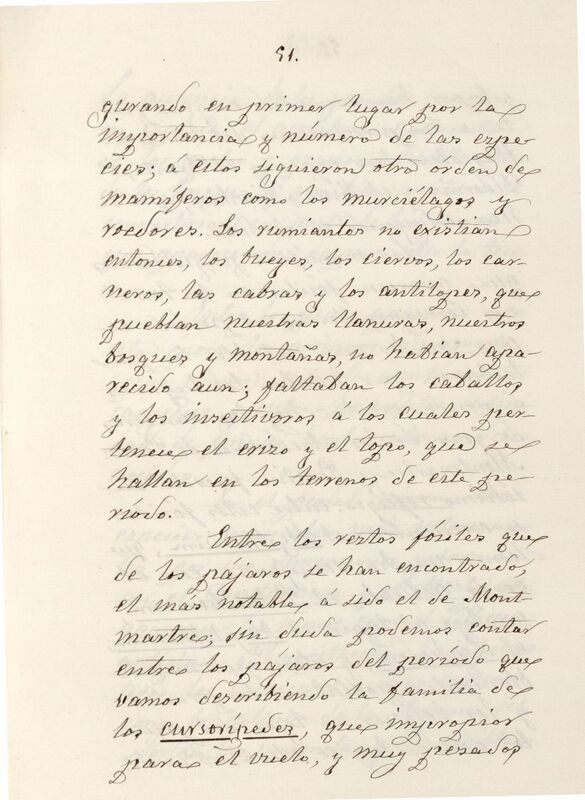 51.
gurando en primer lugar por la
importancia y número de las espe-
cies; á estos siguieron otro órden de
mamíferos como los murciélagos y
roedores. Los rumiantes no existian
entonces, los bueyes, los ciervos, los car-
neros, las cabras y los antílopes, que
pueblan nuestras llanuras, nuestros
bosques y montañas, no habian apa-
recido aun; faltaban los caballos
y los insectivoros á los cuales per-
tenece el erizo y el topo, que se
hallan en los terrenos de este pe-
ríodo.
Entre los restos fósiles que
de los pájaros se han encontrado,
el más notable á sido el de Mont-
martre; sin duda podemos contar
entre los pájaros del período que
vamos describiendo la familia de
los cursorípedes, que impropior
para el vuelo, y muy pesados